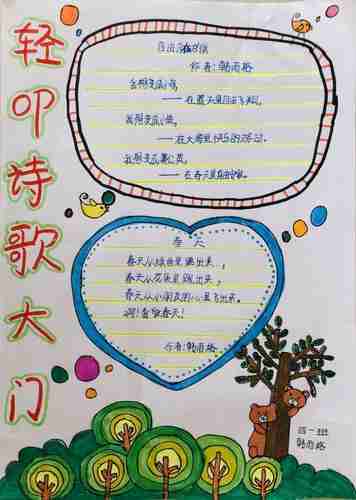 轻叩诗歌大门
自由自在的我
作者：韩雨格
我想变成小鸟，
——在蓝天里自由飞翔。
我想变成小鱼，
——在大海里快乐的游动。
我想变成蒲公英，
——在春天里
春天
春天从绿曲里
春天从花朵里跳出来，
春天从小朋友的心里飞出来。
啊！春天！
作者：韩雨格
四一班
韩雨格